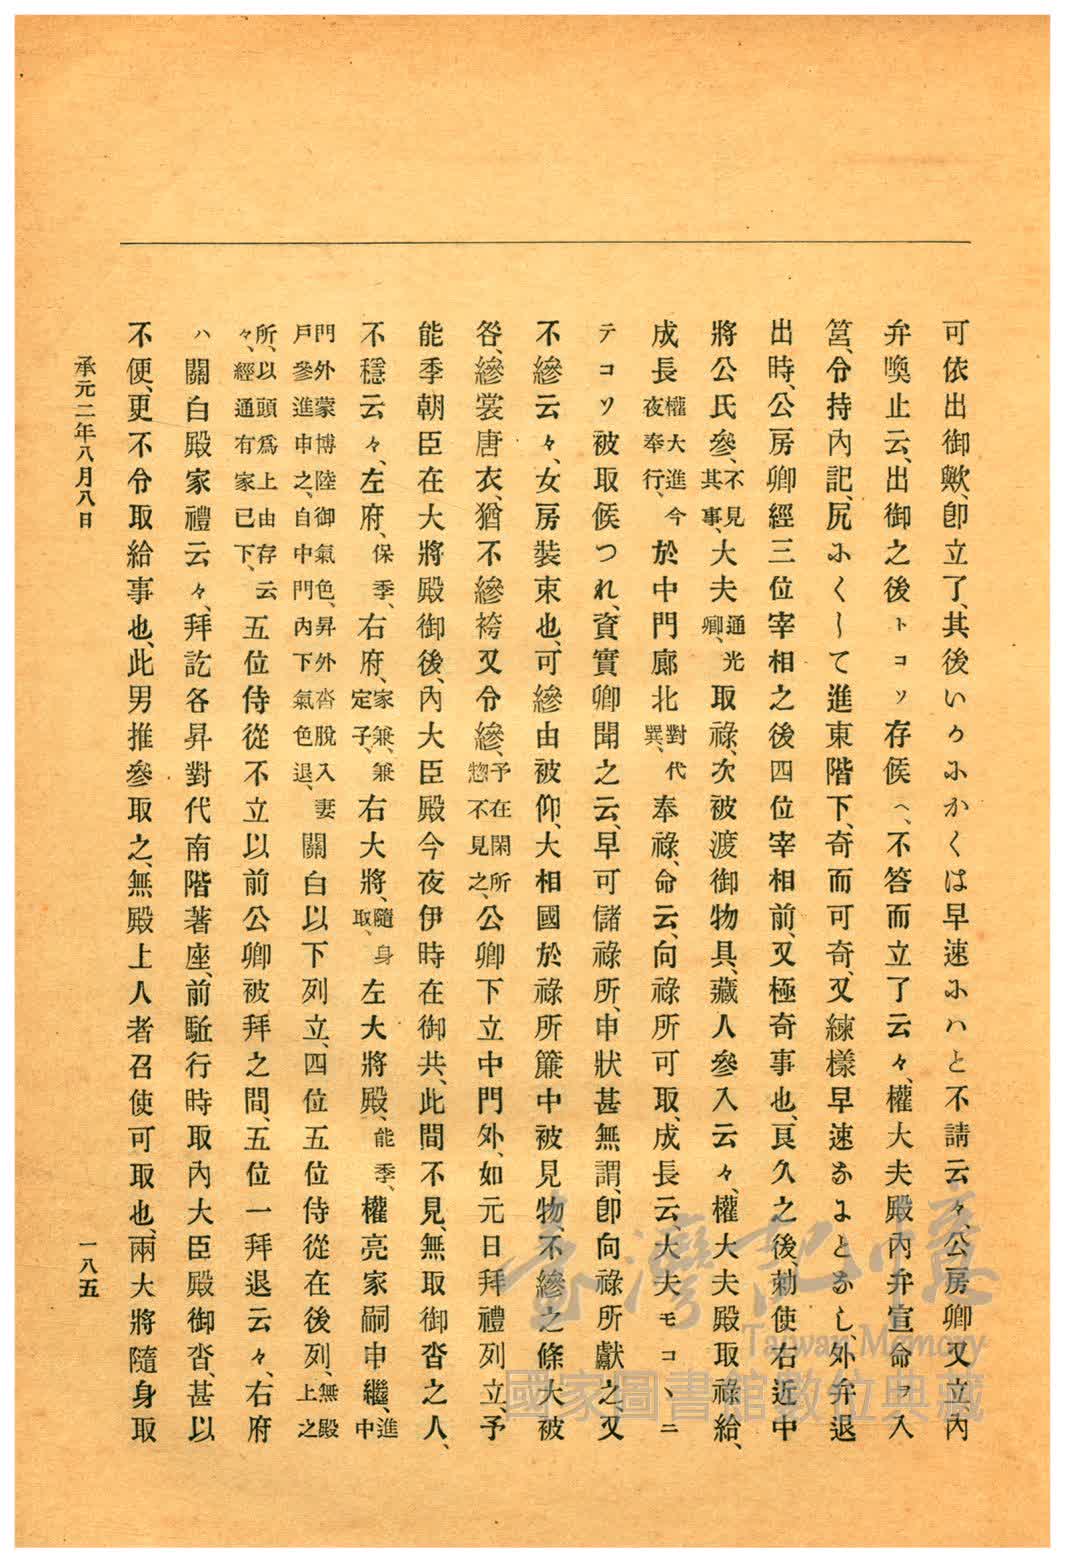 可依出御歟、卽立了、其後いかにかくは早速にハと不請云々、公房卿又立、內
弁喚止云、出御之後トコソ存候ヘ、不答而立了云々、權大夫殿內弁宣命ヲ入
筥、令持內記、尻にくして進東階下、奇而可奇、又練樣早速なよとなし、外弁退
出時、公房卿經三位宰相之後四位宰相前、又極奇事也、良久之後、勅使右近中
將公氏參、不見其事、大夫通光卿、取祿、次被渡御物具、藏人參入云々、權大夫殿取祿給、
成長權大進今夜奉行、於中門廊北對代巽、奉祿、命云、向祿所可取、成長云、大夫モコヽニ
テコソ被取候つれ、資實卿聞之云、早可儲祿所、申狀甚無謂、卽向祿所獻之、又
不縿云々、女房裝束也、可縿由被仰、大相國於祿所簾中被見物、不縿之條大被
咎、縿裳唐衣、猶不縿袴又令縿、予在閑所、惣不見之、公卿下立中門外、如元日拜禮列立、予
能季朝臣在大將殿御後、內大臣殿今夜伊時在御共、此間不見、無取御沓之人、
不穩云々、左府、保季、右府、家兼、兼定子、右大將、隨身取、左大將殿、能季、權亮家嗣申繼、進中
門外蒙博陸御氣色、昇外沓脫入妻戶參進申之、自中門內下氣色退、關白以下列立、四位五位侍從在後列、無殿上之
所、以頭爲上由存云々、經通有家已下、五位侍從不立以前公卿被拜之間、五位一拜退云々、右府
ハ關白殿家禮云々、拜訖各昇對代南階著座、前駈行時取內大臣殿御沓、甚以
不便、更不令取給事也、此男推參取之、無殿上人者召使可取也、兩大將隨身取
承元二年八月八日
一八五
臺灣記憶
Taiwan Memory
國家圖書館數位典藏